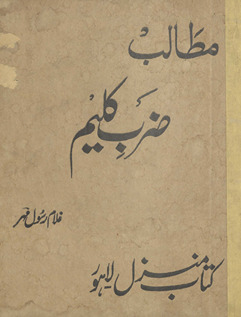 مطالب
ضربِ کلیم
غلام رسول مہر
کتاب منزل لاہور